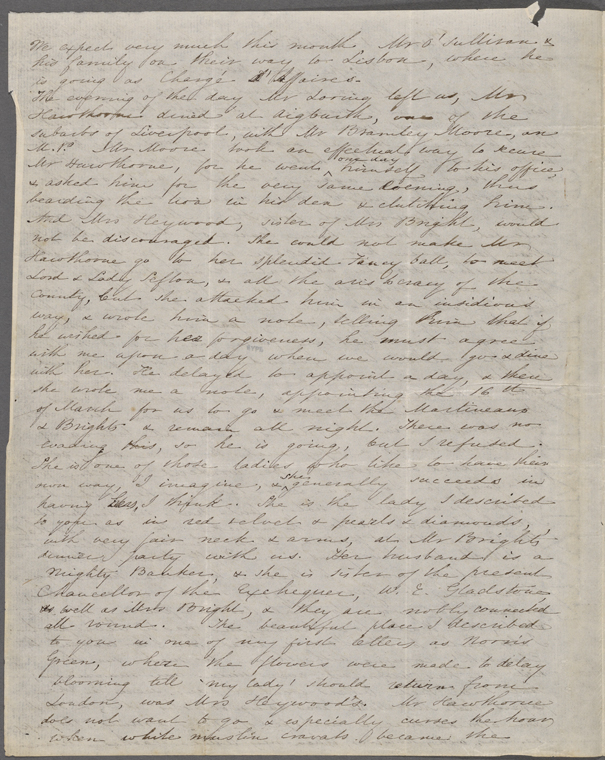 We expect very much this month, Mr O'Sullivan &
his family on their way to Lisbon, where he
is going as Chargé d'Affaires.
The evening of the day Mr Loring left us, Mr
Hawthorne dined at Aigburth, one of the
suburbs of Liverpool, with Mr Bramley Moore, an
M.P. Mr Moore took an effectual way to secure
Mr Hawthorne, for he went one day himself to his office
& asked him for the very same evening, thus
bearding the lion in his den & clutching him.
And Mrs Heywood, sister of Mrs Bright, would
not be discouraged. She could not make Mr
Hawthorne go to her splendid Fancy ball, to meet
Lord & Lady Sefton, & all the aristocracy of the
county, but she attacked him in an insidious
way, & wrote him a note, telling him that if
he wished for her forgiveness, he must agree
with me upon a day when we would go & dine
with her. He delayed to appoint a day, & then
she wrote me a note, appointing the 16th
of March for us to go & meet the Martineaus
& Brights & remain all night. There was no
evading this, so he is going, but I refused.
She is one of those ladies who like to have their
own way, I imagine, & she generally succeeds in
having hers, I think. She is the lady I described
to you as in red velvet & pearls & diamonds,
with very fair neck & arms, at Mr Bright's
dinner party with us. Her husband is a
mighty Banker, & she is sister of the present
Chancellor of the Exchequer, W. E. Gladstone
as well as Mrs Bright, & they are nobly connected
all round. The beautiful place I described
to you in one of my first letters as Norris
Green, where the flowers were made to delay
blooming till 'my lady' should return from
London, was Mrs Heywood's. Mr Hawthorne
does not want to go, & especially curses the hour
when white muslin cravats became the